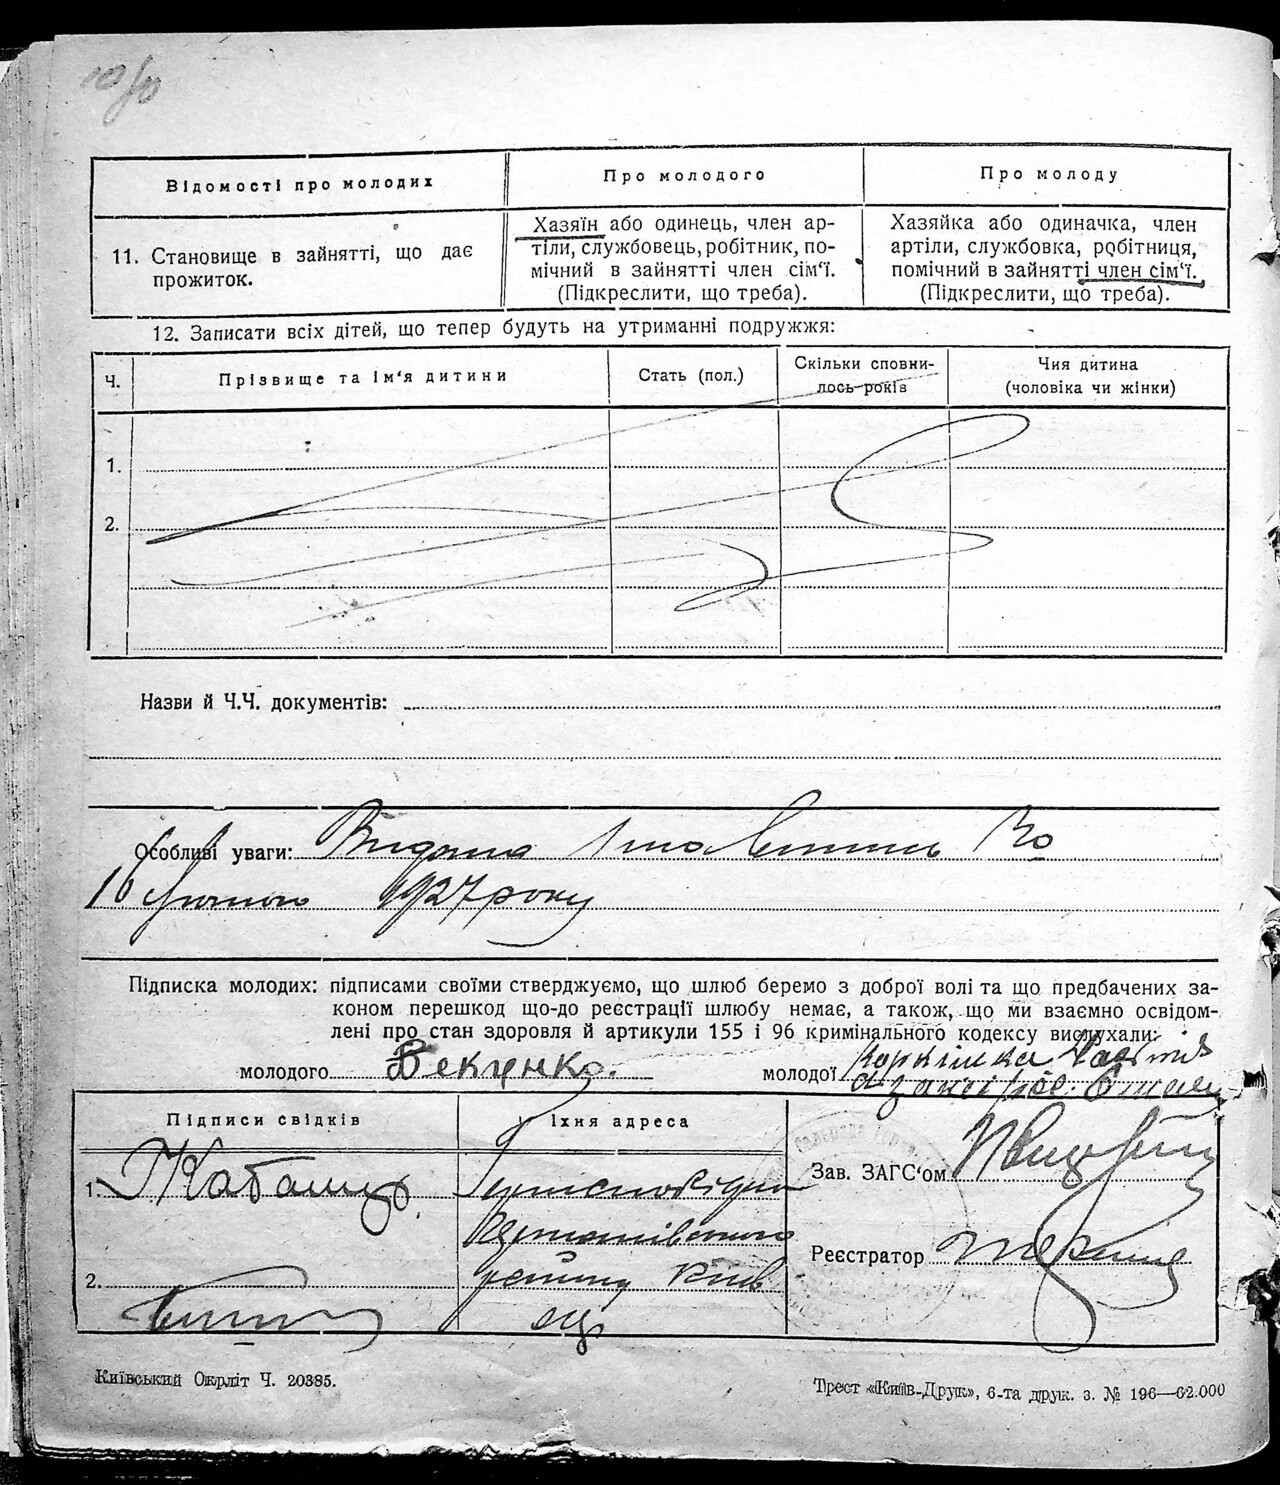 Відомості про молодих
Про молодого
Про молоду
11. Становище в зайнятті, що дає
прожиток.
Хазяїн або одинець, член ар-
тіли, службовець, робітник, по-
мічний в зайнятті член сім'ї.
(Підкреслити, що треба).
Хазяйка або одиначка, член
артіли, службовка, робітниця,
помічний в зайнятті член сім'ї.
(Підкреслити, що треба).
12. Записати всіх дітей, що тепер будуть на утриманні подружжя:
Ч.
Прізвище та ім'я дитини
Стать (пол.)
Скільки сповни-
лось років
Чия дитина
(чоловіка чи жінки)
1.
2.
Назви й Ч.Ч. документів:
Особливі уваги: Видана
16 лютого 1927 року
Підписка молодих: підписами своїми стверджуємо, що шлюб беремо з доброї волі та що предбачених за-
коном перешкод що-до реєстрації шлюбу немає, а також, що ми взаємно освідом-
лені про стан здоровля й артикули 155 і 96 кримінального кодексу вислухали:
молодого
молодої
Підписи свідків
Їхня адреса
1.
2.
району Київ
Зав. ЗАГС'ом
Реєстратор
Київський Окрліт Ч. 20385.
Трест «Київ-Друк», 6-та друк. з. № 196—62.000